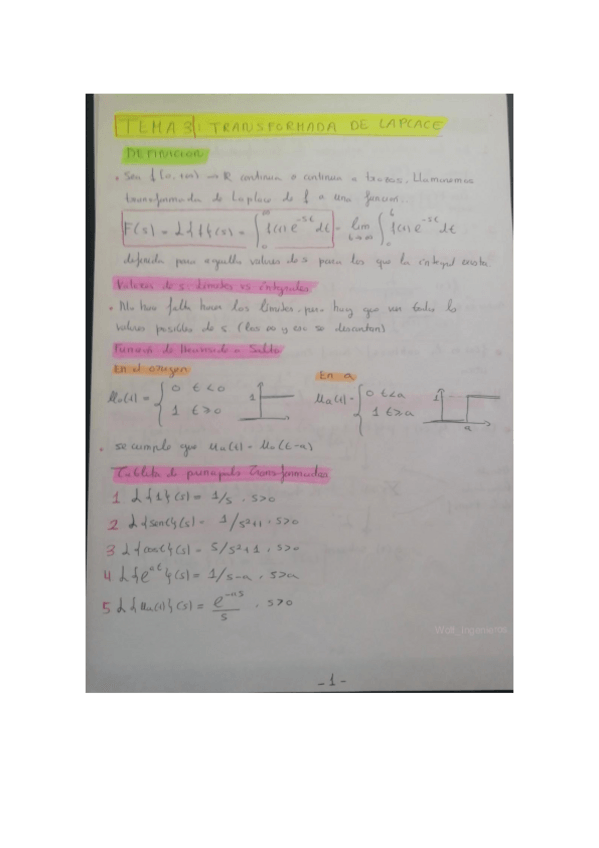 TEMA 3: TRANSFORMADA DE LAPLACE
DEFINICION
• Sea f [0, +∞) → R continua o continua a trozos. Llamaremos
transformada de Laplace de f a una funcion.
F(s) = L{f}(s) = ∫₀^∞ f(t) e^{-st} dt = lim_{b→∞} ∫₀^b f(t) e^{-st} dt
definida para aquellos valores de s para los que la integral exista
Valores de s: limites vs integrales
• No hace falta hacer los limites, pero hay que ver todos los
valores posibles de s (los ∞ y eso se descartan)
Funcion de Heaviside o Salto
En el origen
En a
μ₀(t) = { 0 t<0
1 t>0
1
μa(t) = { 0 t<a
1 t>a
1
a
• se cumple que μa(t) = μ₀(t-a)
Tablita de principales transformadas
1 L{1}(s) = 1/s , s>0
2 L{sent}(s) = 1/s²+1 , s>0
3 L{cost}(s) = s/s²+1 , s>0
4 L{e^{at}}(s) = 1/s-a , s>a
5 L{μa(t)}(s) = e^{-as}/s , s>0
Wolf_Ingenieros
- 1 -